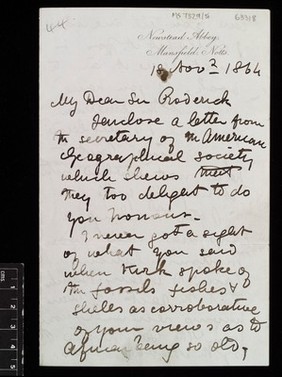 44
MS 7329/5
63318
Newstead Abbey,
Mansfield, Notts.
18 Novr 1864
My Dear Sir Roderick
I enclose a letter from
the secretary of the American
Geographical Society
which shews that
they too delight to do
you honour -
I never got a sight
of what you said
when Kirk spoke of
the fossils fishes &
shells as corroborative
of your views as to
Africa being so old,